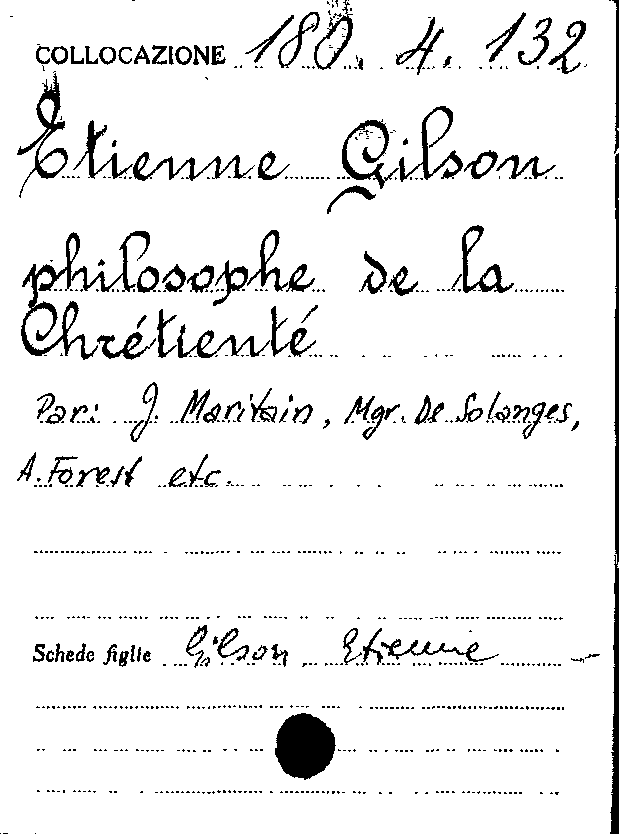 COLLOCAZIONE 180. 4. 132
Etienne Gilson
philosophe de la
Chrétienté
Par: J. Maritain, Mgr. De Solanges,
A. Forest etc.
Schede figlie Gilson Etienne